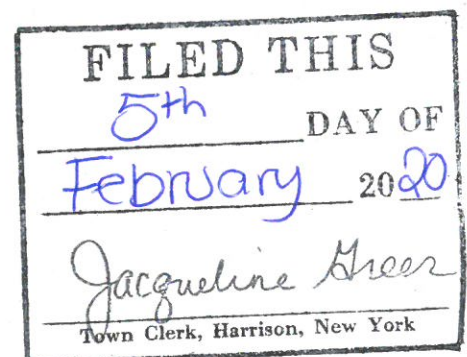 FILED THIS
5th DAY OF
February 2020
Jacqueline Greer
Town Clerk, Harrison, New York